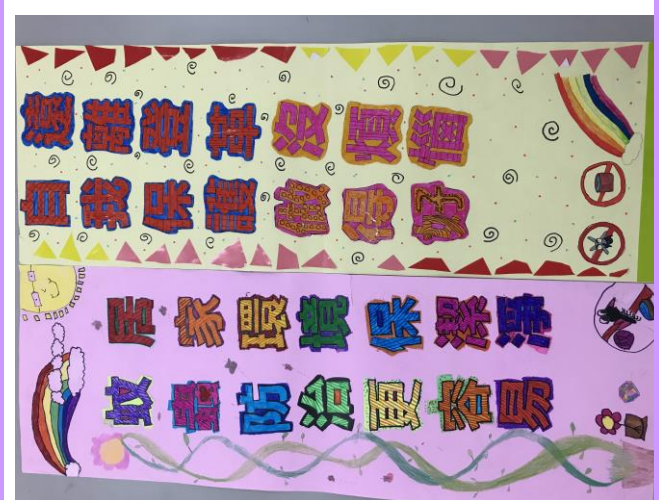 遠離登革沒煩惱
自我保護做得好
居家環境保潔淨
蚊蟲防治更容易